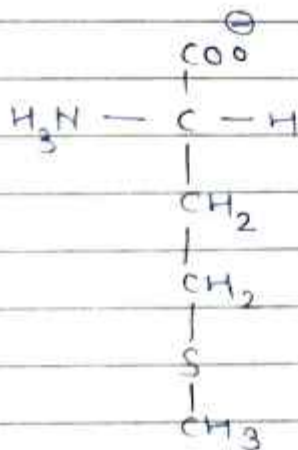 ⊖
COO
|
H3N — C — H
|
CH2
|
CH2
|
S
|
CH3